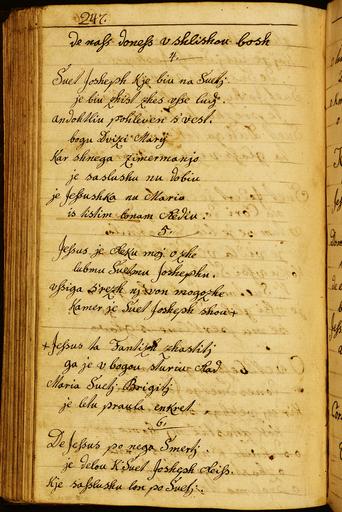 247.
de nass doness v shlishou bosh
4.
Suet Josheph kje biu na Suetj
je biu zhist zhes vse ludj.
andohtliu pohleven s vest.
bogu Dvizi Marij
Kar shnega zimermanjo
je saslushu nu dobiu
je Jessushka nu Mario
is tistim lonam Rediu.
5.
Jessus je Reku moj ozhe
lubmu Suetmu Joshephu.
vssiga srezh nj von mogozhe
Kamer je Suet Josheph shou +
+ Jessus ta Fantizh zhastitj
ga je v bogou sturiu Rad
Maria Suetj Brigitj
je letu praula enkret
6.
De Jessus po nega Smertj.
je delou K Suet Josheph Reiss.
Kje sasslushu lon po Suetj.